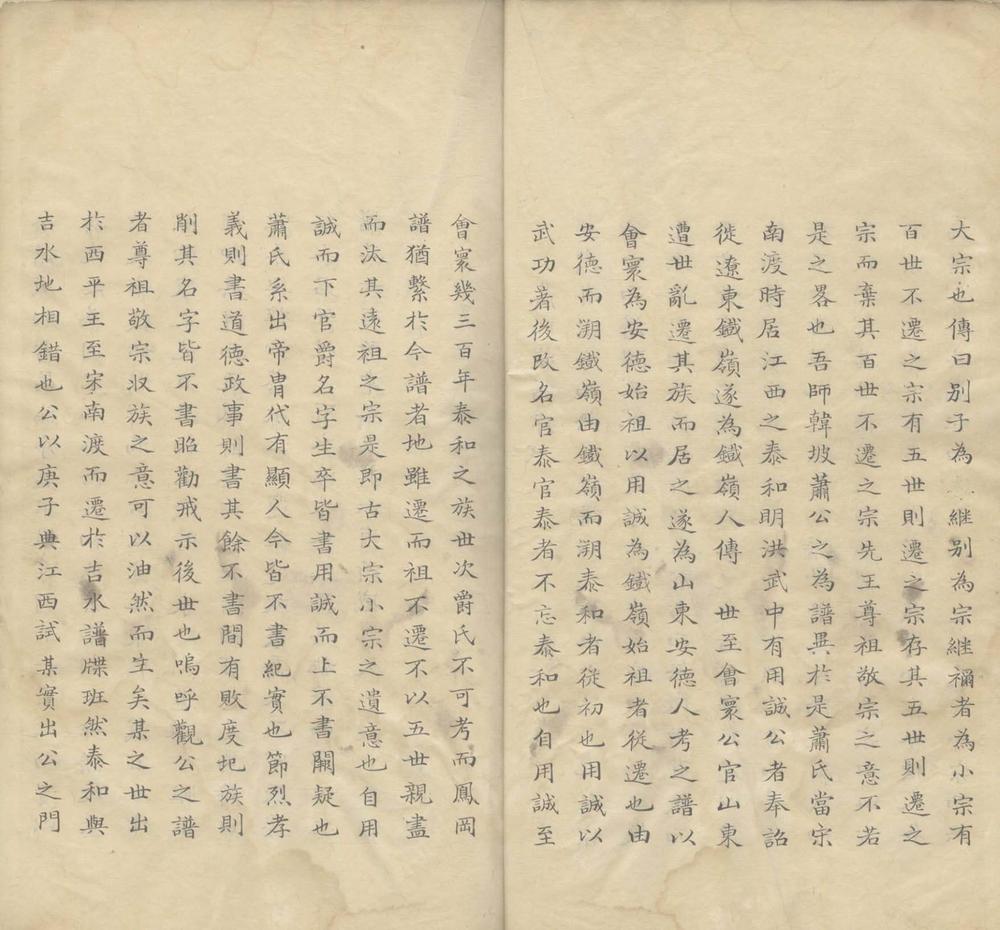 大宗也傳曰別子為 継別為宗継禰者為小宗有
百世不遷之宗有五世則遷之宗存其五世則遷之
宗而棄其百世不遷之宗先王尊祖敬宗之意不若
是之畧也吾師韓坡蕭公之為譜異於是蕭氏當宋
南渡時居江西之泰和明洪武中有用誠公者奉詔
徙遼東鐵嶺遂為鐵嶺人傳 世至會寰公官山東
遭世亂遷其族而居之遂為山東安德人考之譜以
會寰為安德始祖以用誠為鐵嶺始祖者從遷也由
安德而溯鐵嶺由鐵嶺而溯泰和者從初也用誠以
武功著後改名官泰官泰者不忘泰和也自用誠至
會寰幾三百年泰和之族世次爵氏不可考而鳳岡
譜猶繫於今譜者地雖遷而祖不遷不以五世親盡
而汰其遠祖之宗是即古大宗小宗之遺意也自用
誠而下官爵名字生卒皆書用誠而上不書闕疑也
蕭氏系出帝胄代有顯人今皆不書紀實也節烈孝
義則書道德政事則書其餘不書間有敗度圮族則
削其名字皆不書昭勸戒示後世也嗚呼觀公之譜
者尊祖敬宗収族之意可以油然而生矣某之世出
於西平王至宋南渡而遷於吉水譜牒班然泰和與
吉水地相錯也公以庚子典江西試某實出公之門